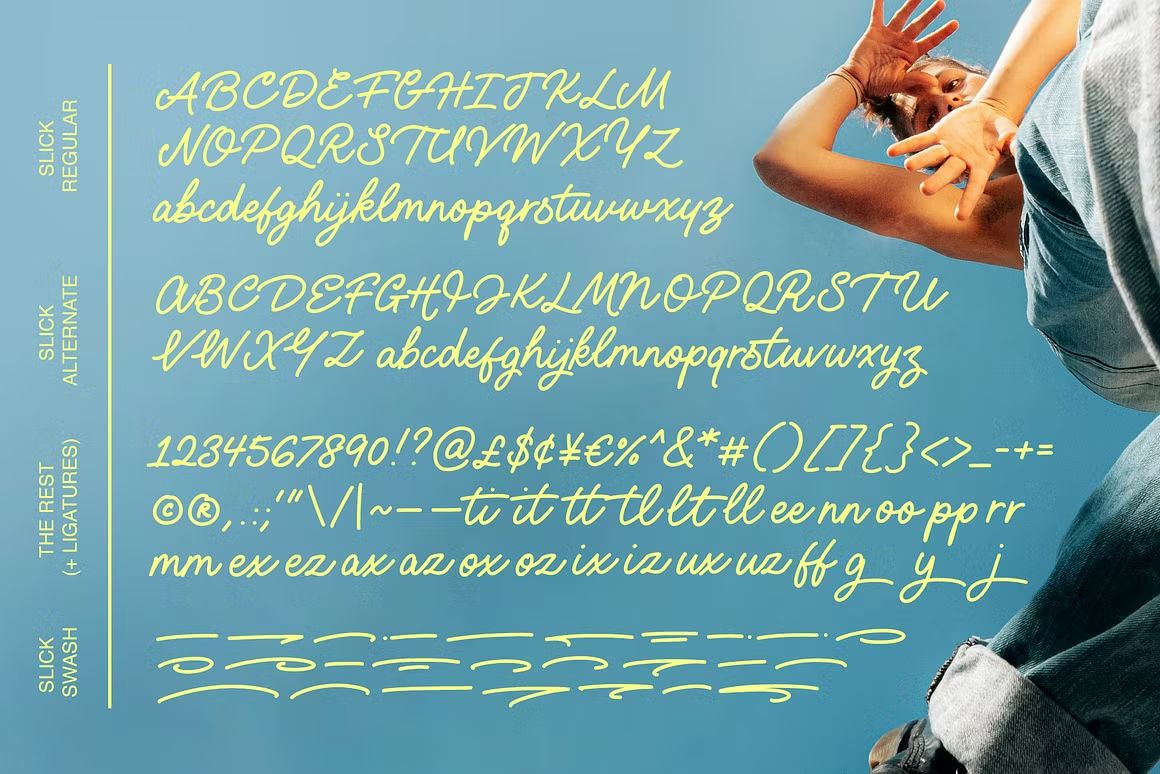 SLICK
REGULAR
ABCDEFGHIJKLM
NOPQRSTUVWXYZ
abcdefghijklmnopqrstuvwxyz
SLICK
ALTERNATE
ABCDEFGHIJKLMNOPQRSTU
VWXYZ abcdefghijklmnopqrstuvwxyz
THE REST
(+ LIGATURES)
1234567890!?@£$¢¥€%^&*#()[]{}<>_-+=
©®,.:;'"\/|~–—ti it tt tl lt ll ee nn oo pp rr
mm ex ez ax az ox oz ix iz ux uz ff g y j
SLICK
SWASH